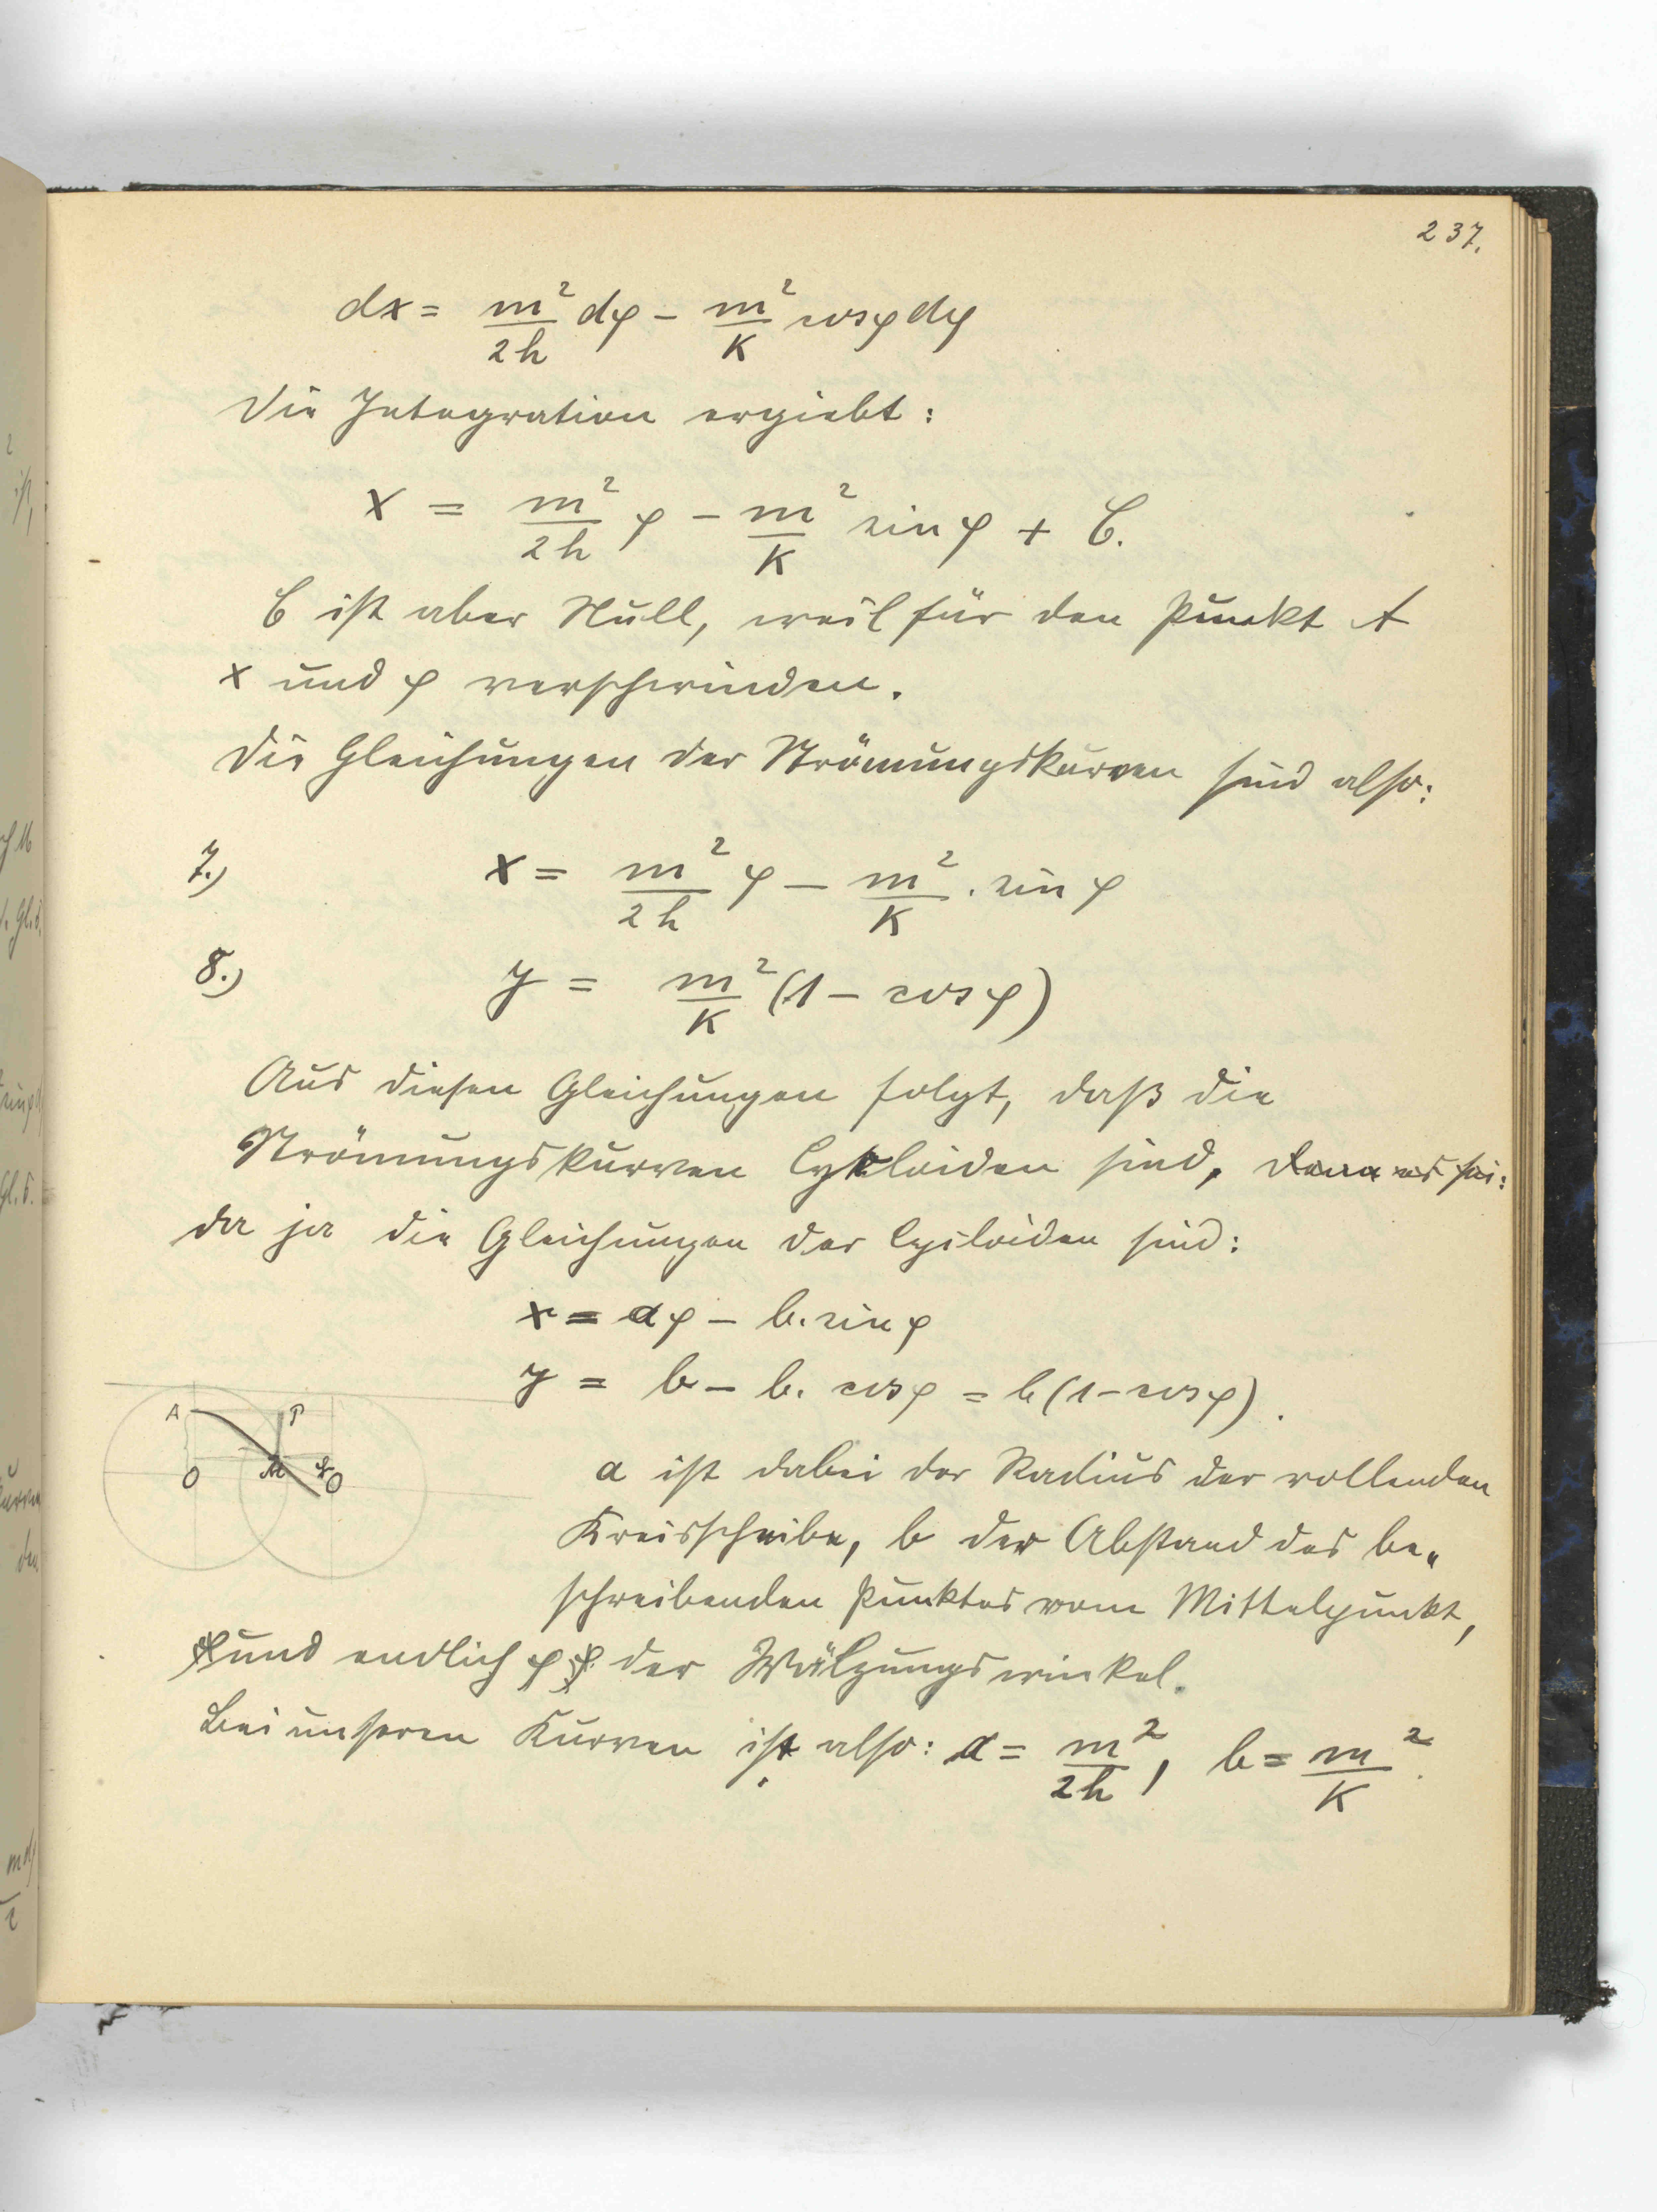 237.
dx = m²/2h dφ − m²/K cosφ dφ
Die Integration ergiebt:
x = m²/2h φ − m²/K sin φ + C.
C ist aber Null, weil für den Punkt A
x und φ verschwinden.
Die Gleichungen der Strömungskurven sind also:
7.) x = m²/2h φ − m²/K . sin φ
8.) y = m²/K (1 − cos φ)
Aus diesen Gleichungen folgt, daß die
Strömungskurven Cykloiden sind, denn es sei:
da ja die Gleichungen der Cycloiden sind:
x = aφ − b. sin φ
y = b − b. cosφ = b(1 − cosφ).
A P
O M O
a ist dabei der Radius der rollenden
Kreisscheibe, b der Abstand des be„
schreibenden Punktes vom Mittelpunkt,
und endlich φ der Wälzungswinkel.
Bei unseren Kurven ist also: a = m²/2h, b = m²/K.